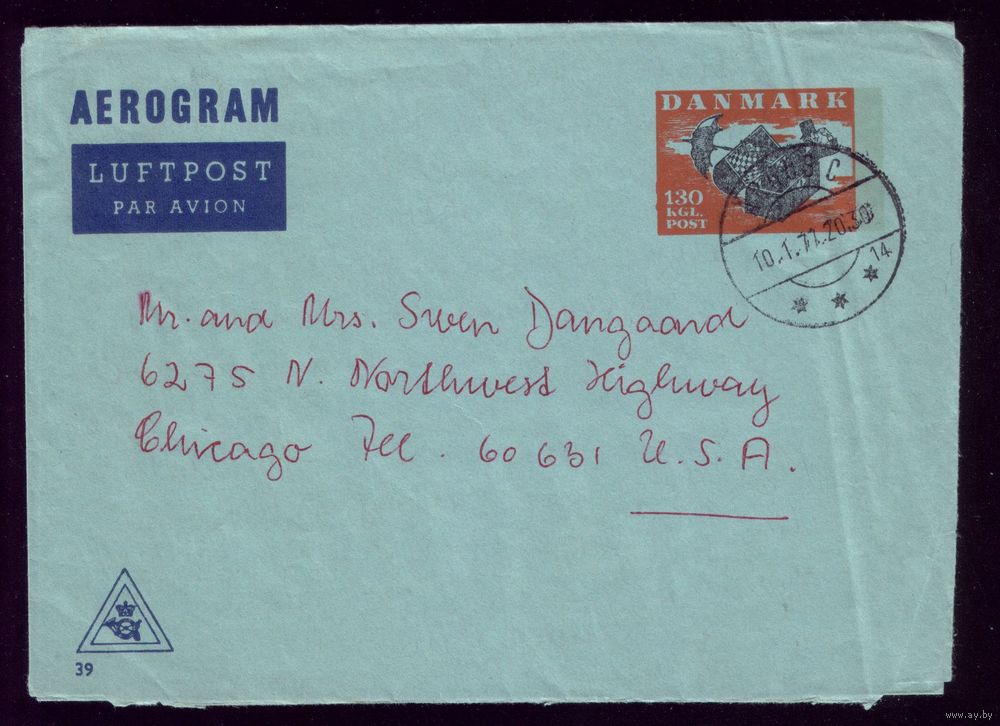 AEROGRAM
LUFTPOST
PAR AVION
DANMARK
130
KGL.
POST
C
10.1.71.20.30
14
Mr. and Mrs. Swen Dangaard
6275 N. Northwest Highway
Chicago Ill. 60631 U.S.A.
39
www.ay.by